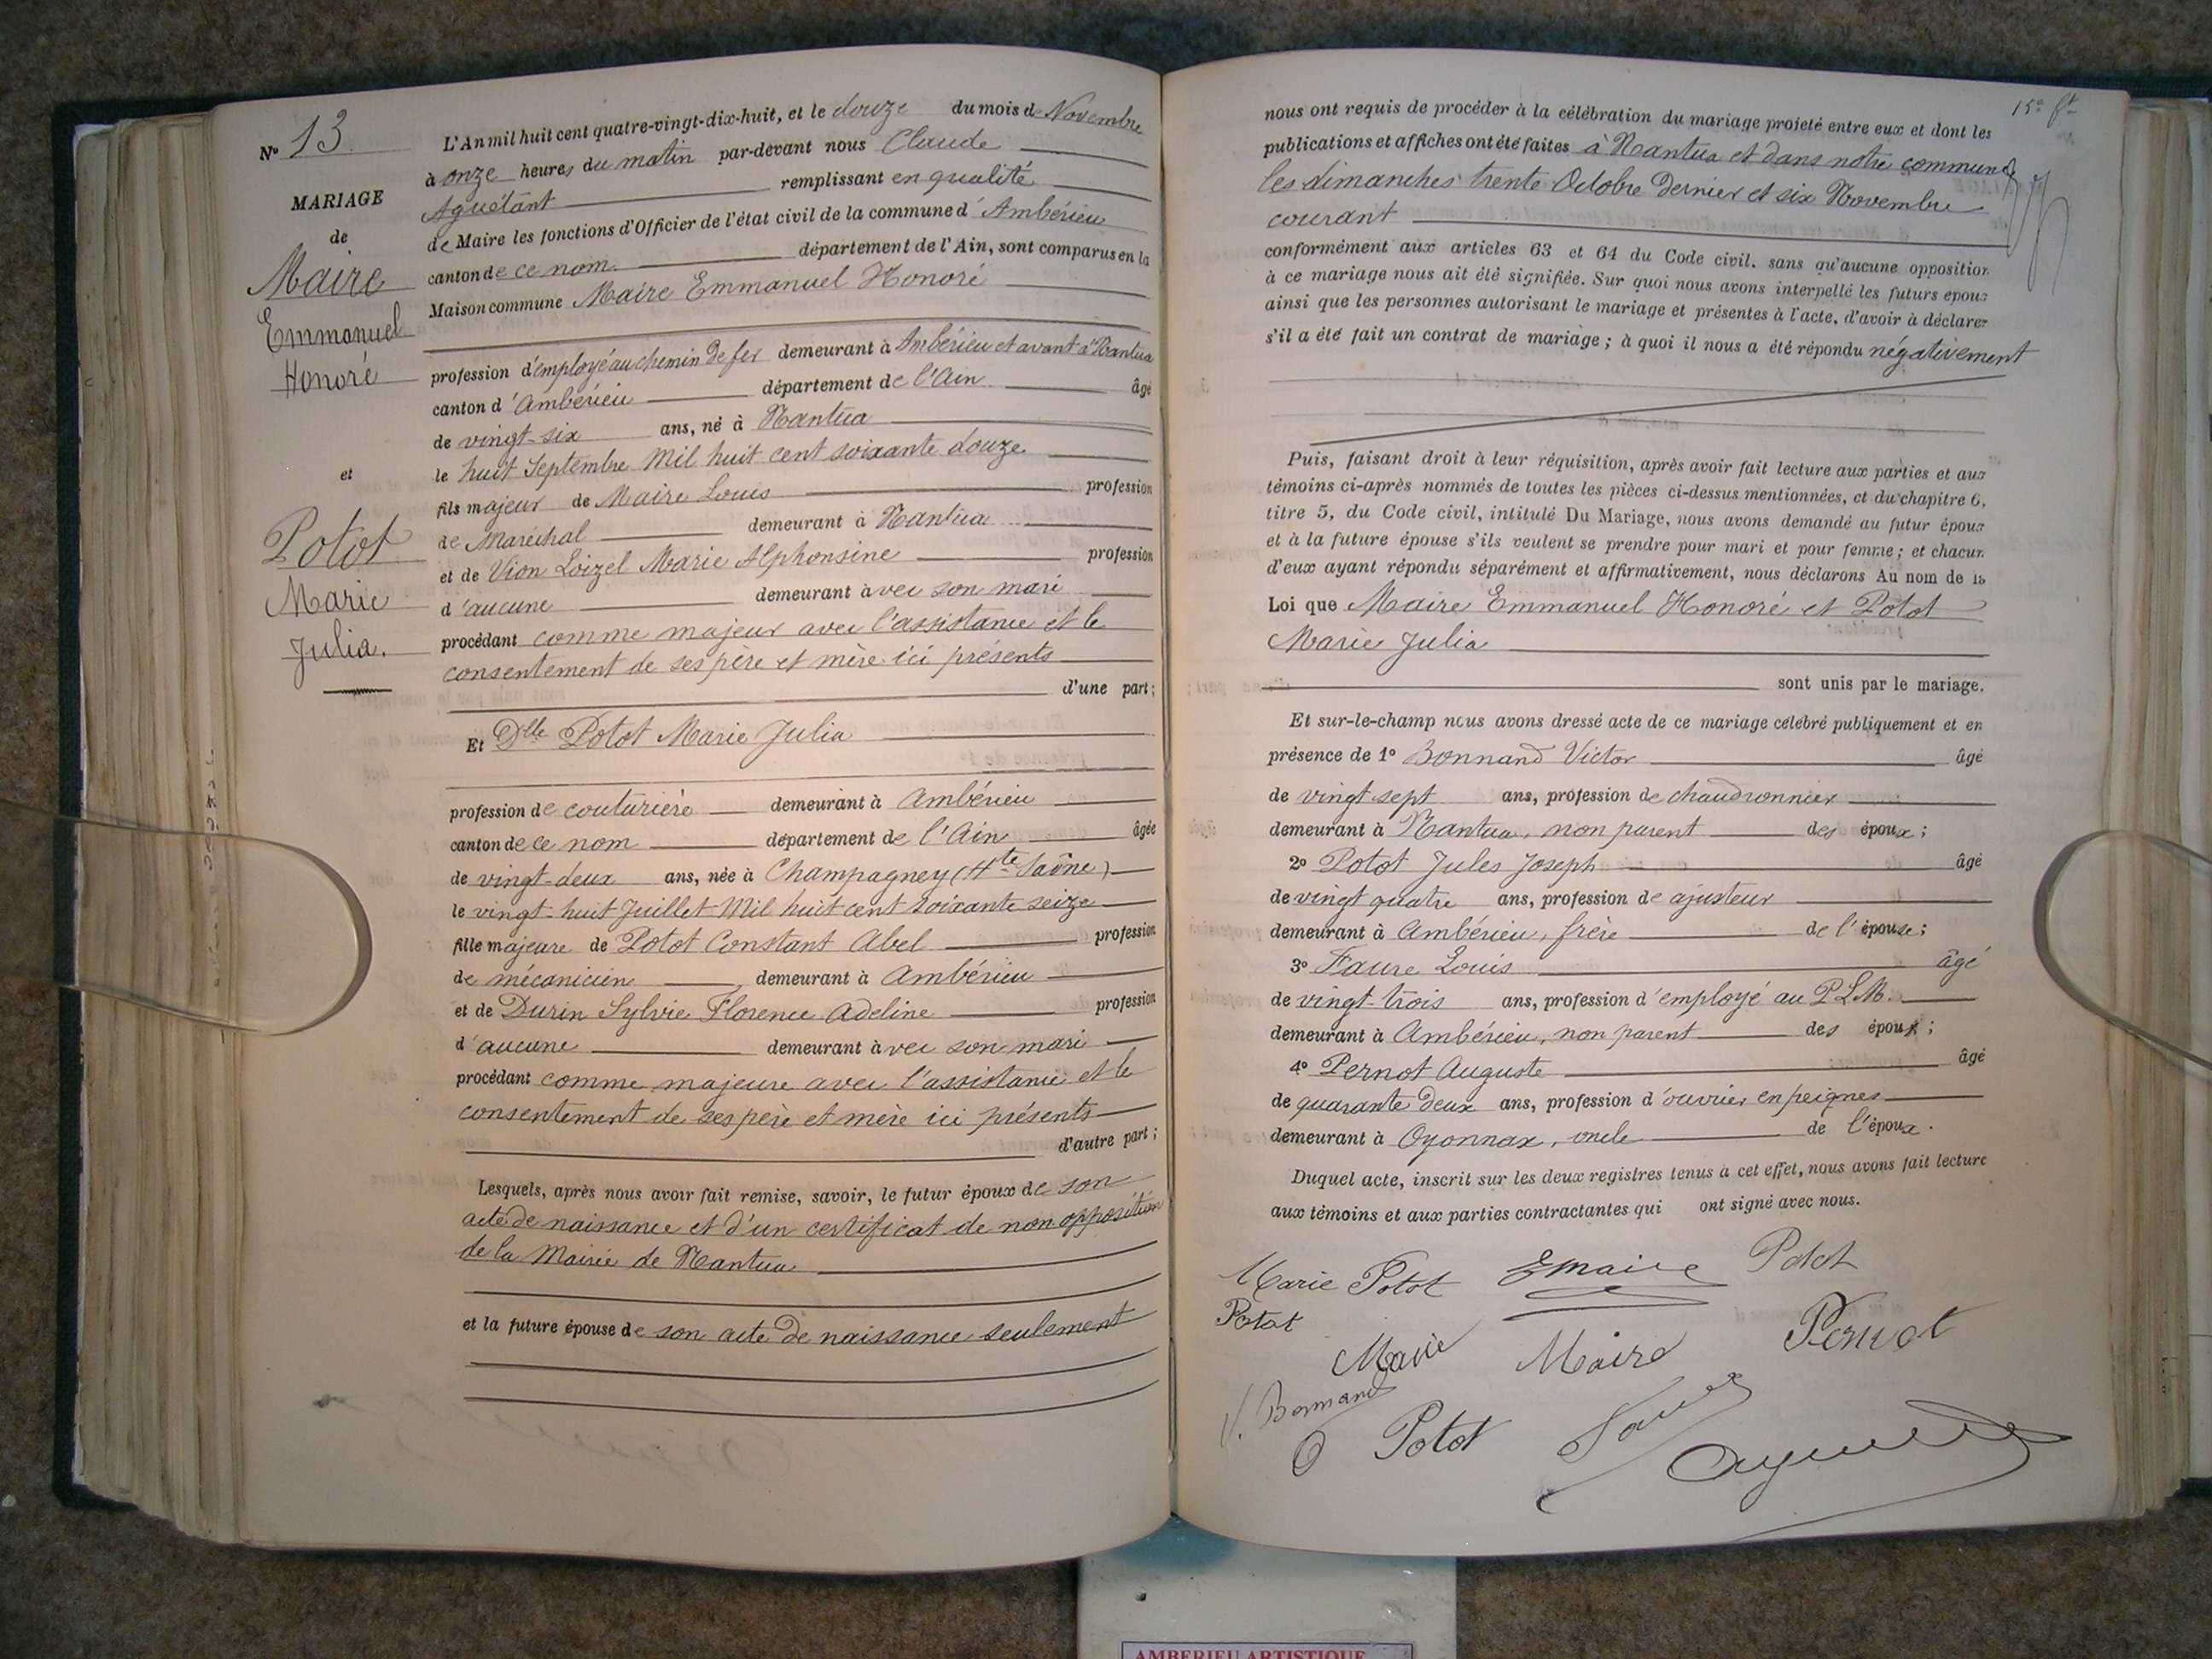 Nº 13.
MARIAGE
de
Maire
Emmanuel
Honoré
et
Potot
Marie
Julia.
L'An mil huit cent quatre-vingt-dix-huit, et le douze du mois de Novembre
à onze heures du matin par-devant nous Claude
Aguétant remplissant en qualité
de Maire les fonctions d'Officier de l'état civil de la commune d'Ambérieu
canton de ce nom. département de l'Ain, sont comparus en la
Maison commune Maire Emmanuel Honoré
profession d'employé au chemin de fer demeurant à Ambérieu et avant à Nantua
canton d'Ambérieu département de l'Ain âgé
de vingt-six ans, né à Nantua
le huit Septembre Mil huit cent soixante douze
fils majeur de Maire Louis profession
de Maréchal demeurant à Nantua
et de Vion Loizel Marie Alphonsine profession
d'aucune demeurant avec son mari
procédant comme majeur avec l'assistance et le
consentement de ses père et mère ici présents
d'une part;
Et Dlle Potot Marie Julia
profession de couturière demeurant à Ambérieu
canton de ce nom département de l'Ain âgée
de vingt-deux ans, née à Champagney (Hte Saône)
le vingt-huit Juillet Mil huit cent soixante seize
fille majeure de Potot Constant Abel profession
de mécanicien demeurant à Ambérieu
et de Durin Sylvie Florence Adeline profession
d'aucune demeurant avec son mari
procédant comme majeure avec l'assistance et le
consentement de ses père et mère ici présents
d'autre part;
Lesquels, après nous avoir fait remise, savoir, le futur époux de son
acte de naissance et d'un certificat de non opposition
de la Mairie de Nantua
et la future épouse de son acte de naissance seulement
15e ft
nous ont requis de procéder à la célébration du mariage projeté entre eux et dont les
publications et affiches ont été faites à Nantua et dans notre commune
les dimanches trente Octobre dernier et six Novembre
courant
conformément aux articles 63 et 64 du Code civil. sans qu'aucune opposition
à ce mariage nous ait été signifiée. Sur quoi nous avons interpellé les futurs epoux
ainsi que les personnes autorisant le mariage et présentes à l'acte, d'avoir à déclarer
s'il a été fait un contrat de mariage; à quoi il nous a été répondu négativement
Puis, faisant droit à leur réquisition, après avoir fait lecture aux parties et aux
témoins ci-après nommés de toutes les pièces ci-dessus mentionnées, et du chapitre 6,
titre 5, du Code civil, intitulé Du Mariage, nous avons demandé au futur époux
et à la future épouse s'ils veulent se prendre pour mari et pour femme; et chacun
d'eux ayant répondu séparément et affirmativement, nous déclarons Au nom de la
Loi que Maire Emmanuel Honoré et Potot
Marie Julia
sont unis par le mariage.
Et sur-le-champ nous avons dressé acte de ce mariage célébré publiquement et en
présence de 1º Bonnand Victor âgé
de vingt sept ans, profession de chaudronnier
demeurant à Nantua, non parent des époux;
2º Potot Jules Joseph âgé
de vingt quatre ans, profession de ajusteur
demeurant à Ambérieu, frère de l'épouse;
3º Faure Louis âgé
de vingt-trois ans, profession d'employé au P.L.M.
demeurant à Ambérieu, non parent des époux;
4º Pernot Auguste âgé
de quarante deux ans, profession d'ouvrier en peignes
demeurant à Oyonnax, oncle de l'époux.
Duquel acte, inscrit sur les deux registres tenus à cet effet, nous avons fait lecture
aux témoins et aux parties contractantes qui ont signé avec nous.
Marie Potot EMaire Potot
Potot
Maire Maire Pernot
V. Bonnand
Potot
AMBERIEU ARTISTIQUE